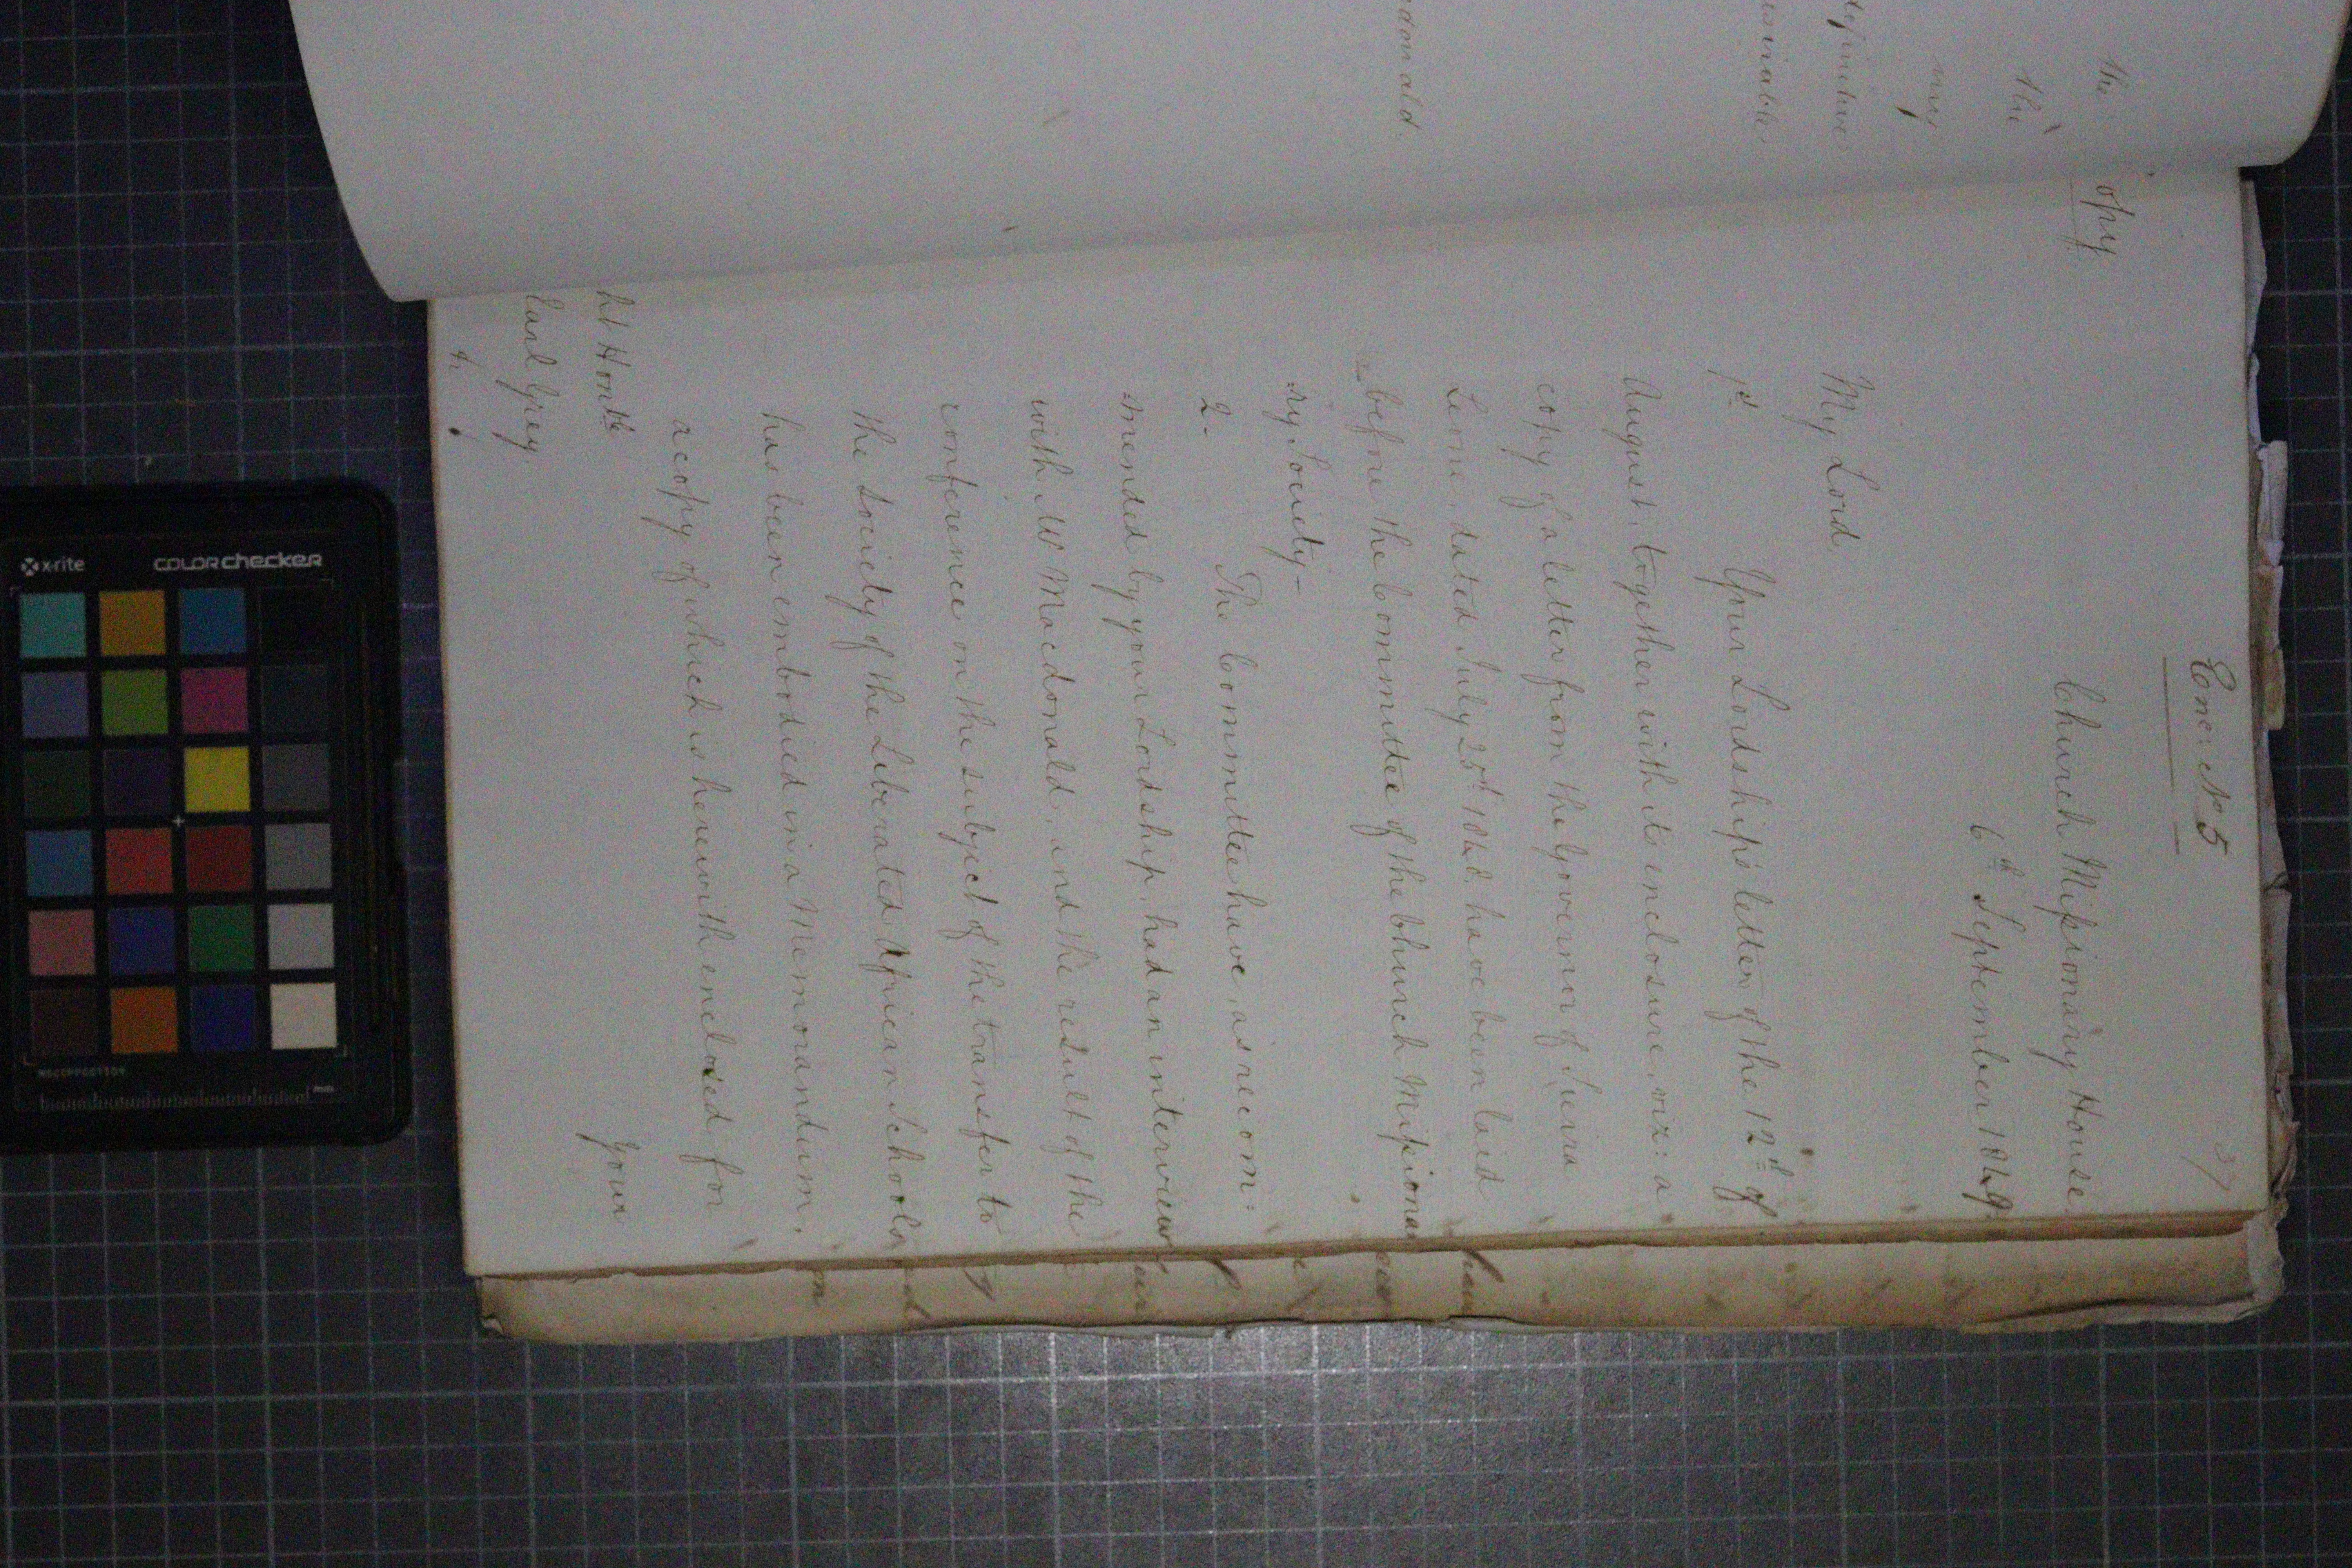 Enc: No 5
37
opy
Church Missionary House
6th September 1849
My Lord.
1st Your Lordship's letter of the 12th of
August, together with its enclosure, viz: a
copy of a letter from the Governor of Sierra
Leone, dated July 25th 1840. have been laid
before the Committee of the Church Missiona
ry Society—
2. The Committee have, as recom:
mended by your Lordship, had an interview
with Mr Macdonald, and the result of the
conference on the subject of the transfer to
the Society of the Liberated African Schools
has been embodied in a Memorandum,
a copy of which is herewith enclosed, for
Your
ht Honble
Earl Grey.
the
the
may
definitive
donald.
x-rite
colorchecker
mm